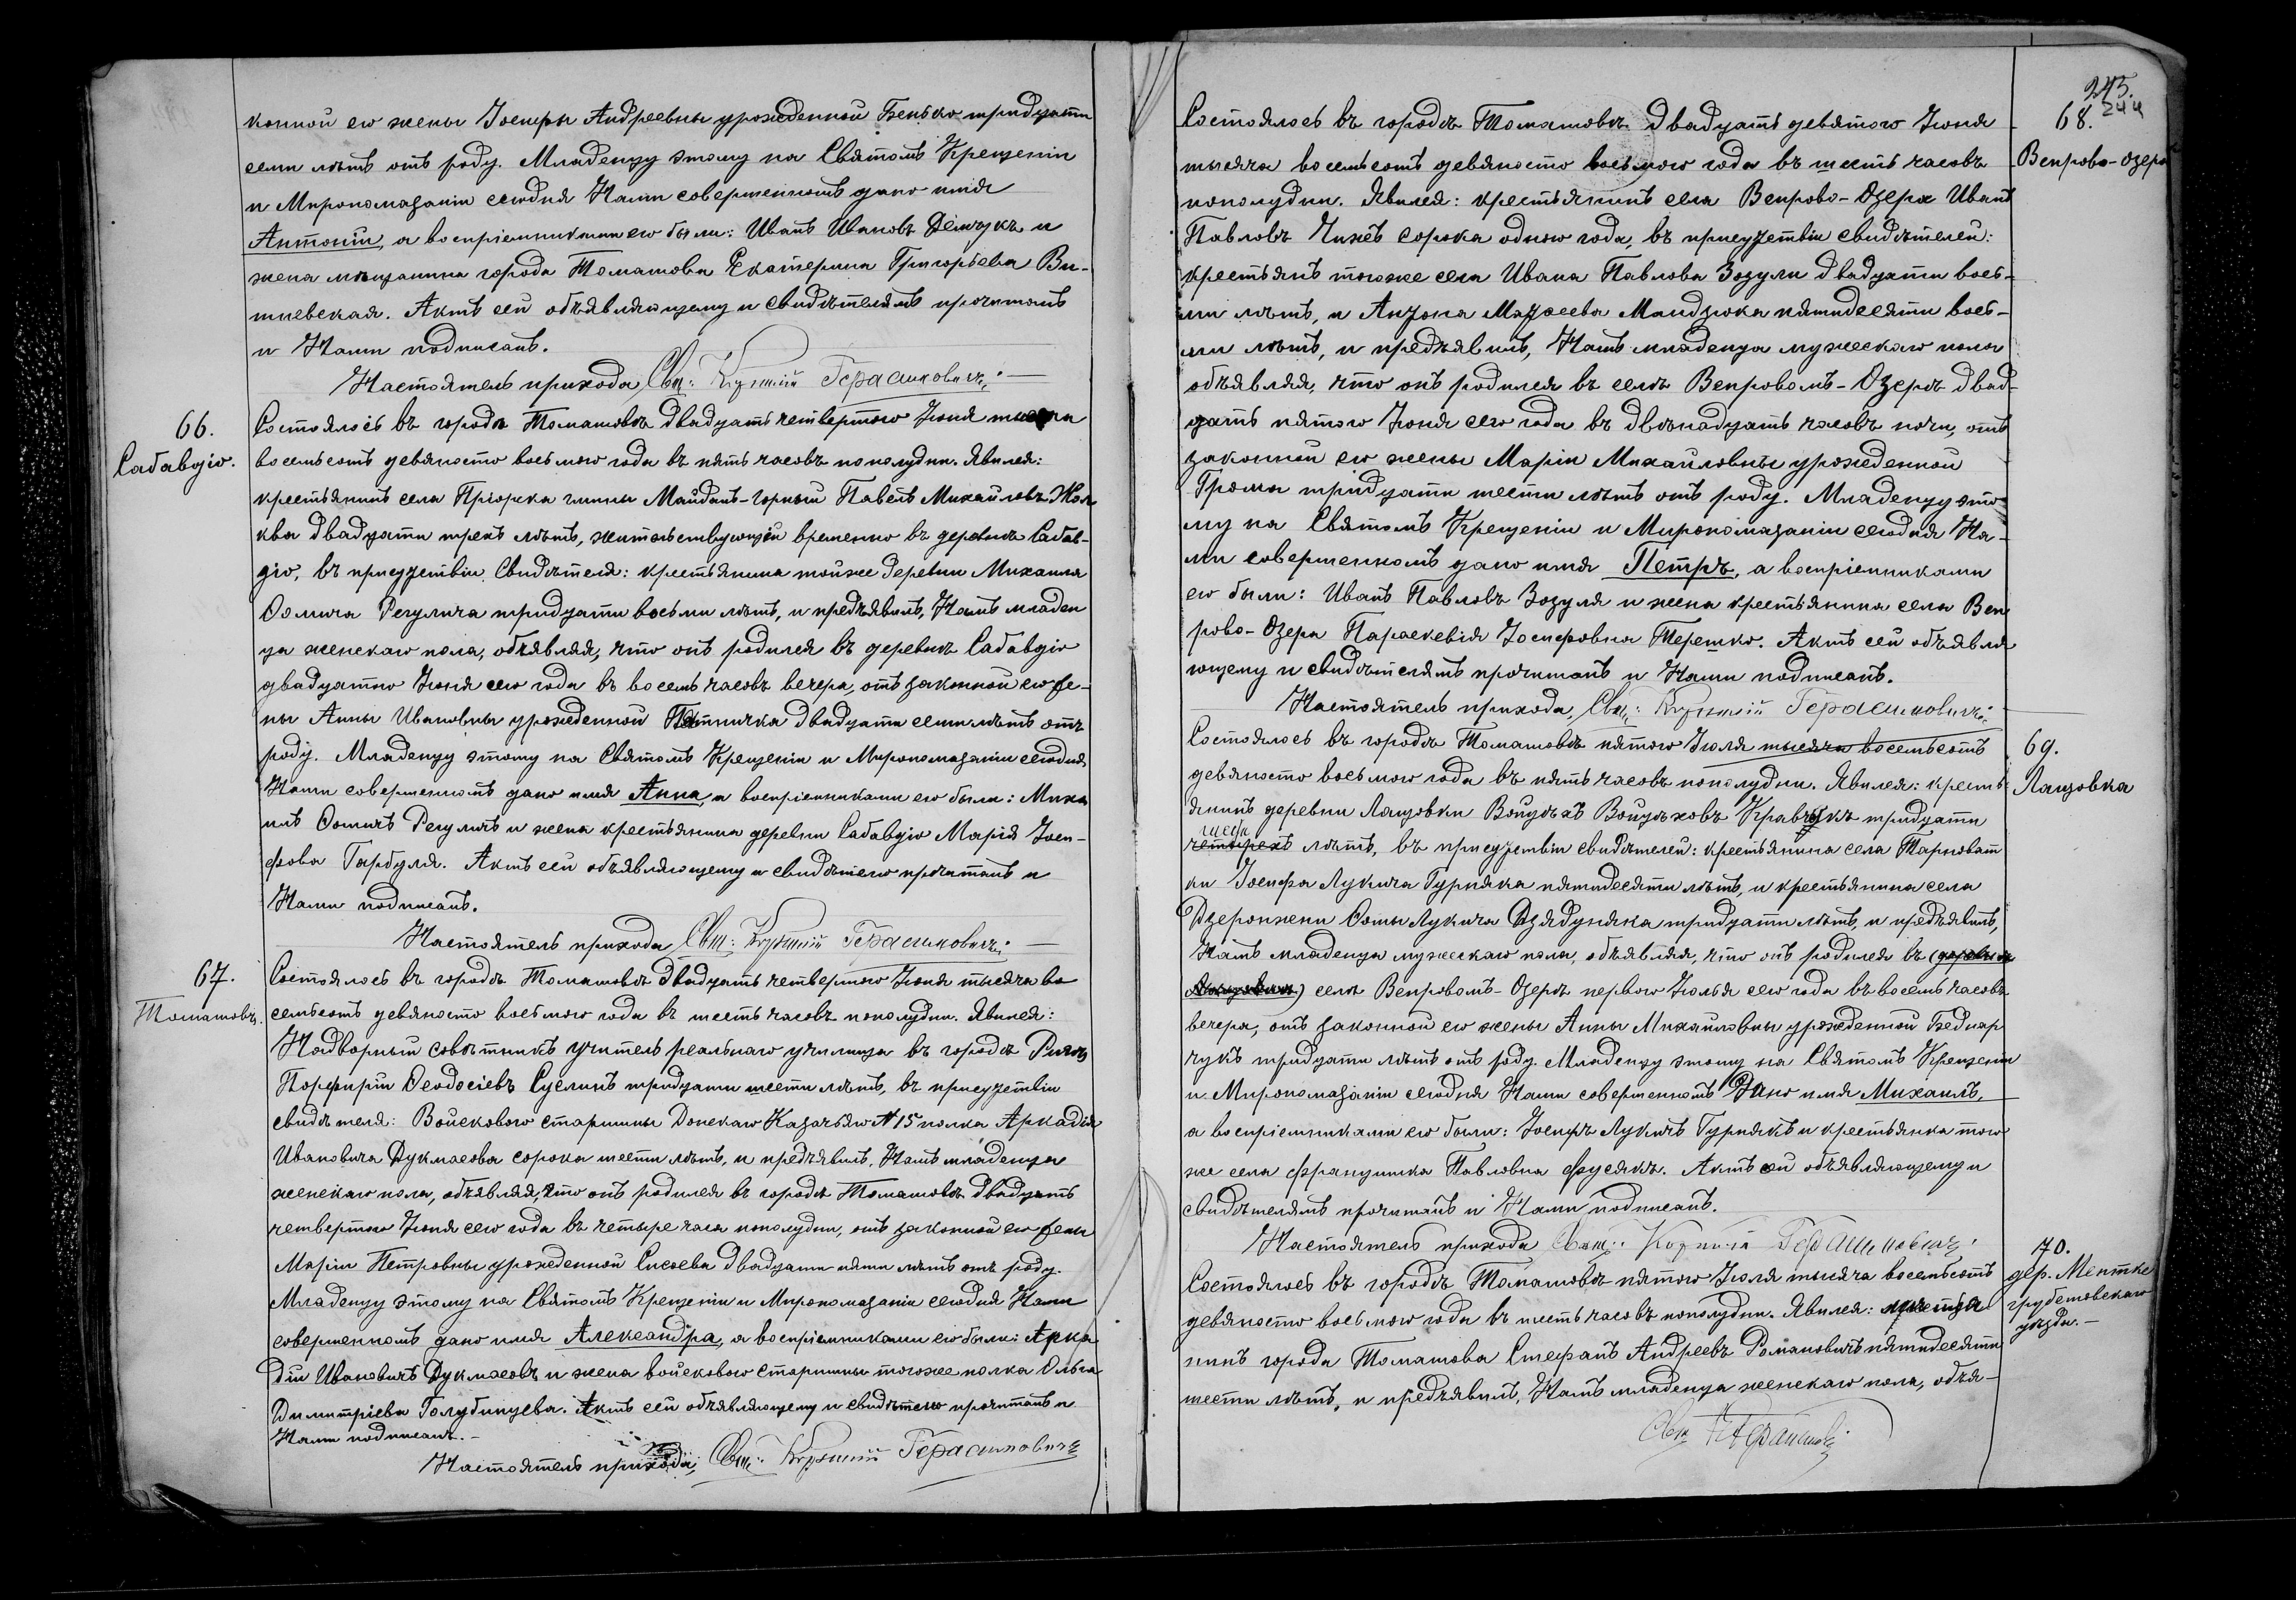 конной его жены Іосифы Андреевны урожденной Бенько тридцати
семи лѣтъ отъ роду. Младенцу этому на Святомъ Крещеніи
и Миропомазаніи сегодня Нами совершенномъ дано имя
Антоній, а воспріемниками его были: Иванъ Ивановъ Демчукъ и
жена мѣщанина города Томашова Екатерина Григорьева Ви-
шневская. Актъ сей объявляющему и свидѣтелямъ прочитанъ
и Нами подписанъ.
Настоятель прихода, Свщ: Корнилій Герасимовичъ.
66.
Сабавдіо.
Состоялось въ городѣ Томашовѣ двадцать четвертого Іюня тысяча
восемьсотъ девяносто восьмого года въ пять часовъ пополудни. Явился:
крестьянинъ села Пріорска гмины Майданъ-горный Павелъ Михайловъ Жол
ква двадцати трехъ лѣтъ, жительствующій временно въ деревнѣ Сабав-
діо, въ присутствіи свидѣтеля: крестьянина тойже деревни Михаила
Ѳомича Регулича тридцати восьми лѣтъ, и предъявилъ, Намъ младен
ца женскаго пола, объявляя, что онъ родился въ деревнѣ Сабавдіо
двадцатого Іюня сего года въ восемь часовъ вечера, отъ законной его же-
ны Анны Ивановны урожденной Пятничка двадцати семи лѣтъ отъ
роду. Младенцу этому на Святомъ Крещеніи и Миропомазаніи сегодня,
Нами совершенномъ дано имя Анна, а воспріемниками его были: Миха
илъ Ѳомичъ Регуличъ и жена крестьянина деревни Сабавдіо Марія Іоси-
фова Гарбуля. Актъ сей объявляющему и свидѣтелю прочитанъ и
Нами подписанъ.
Настоятель прихода Свщ: Корнилій Герасимовичъ.
67.
Томашовъ.
Состоялось въ городѣ Томашовѣ двадцать четвертого Іюня тысяча во
семьсотъ девяносто восьмого года въ шесть часовъ пополудни. Явился:
Надворный совѣтникъ учитель реальнаго училища въ городѣ Ригѣ
Порфирій Ѳеодосіевъ Суслинъ тридцати шести лѣтъ, въ присутствіи
свидѣтеля: Войскового старшины Донскаго Казачьяго № 15 полка Аркадія
Ивановича Дукмасова сорока шести лѣтъ, и предъявилъ, Намъ младенца
женскаго пола, объявляя, что онъ родился въ городѣ Томашовѣ двадцать
четвертого Іюня сего года въ четыре часа пополудни, отъ законной его жены
Маріи Петровны урожденной Сысоева двадцати пяти лѣтъ отъ роду.
Младенцу этому на Святомъ Крещеніи и Миропомазаніи сегодня Нами
совершенномъ дано имя Александра, а воспріемниками его были: Арка
дій Ивановичъ Дукмасовъ и жена войскового старшины тогоже полка Ольга
Димитріева Голубинцева. Актъ сей объявляющему и свидѣтелю прочитанъ и
Нами подписанъ.-
Настоятель прихода, Свщ: Корнилій Герасимовичъ
243.
244
68.
Вепрово-озеро
Состоялось въ городѣ Томашовѣ двадцать девятого Іюня
тысяча восемьсотъ девяносто восьмого года въ шесть часовъ
пополудни. Явился: крестьянинъ села Вепрово-Озера Иванъ
Павловъ Чижъ сорока одного года, въ присутствіи свидѣтелей:
крестьянъ тогоже села Ивана Павлова Зозули двадцати вось-
ми лѣтъ, и Антона Матѳеева Мандзюка пятидесяти вось-
ми лѣтъ, и предъявилъ, Намъ младенца мужескаго пола
объявляя, что онъ родился въ селѣ Вепровомъ-Озерѣ двад-
цать пятого Іюня сего года въ двѣнадцать часовъ ночи, отъ
законной его жены Маріи Михайловны урожденной
Грома тридцати шести лѣтъ отъ роду. Младенцу это-
му на Святомъ Крещеніи и Миропомазаніи сегодня На-
ми совершенномъ дано имя Петръ, а воспріемниками
его были: Иванъ Павловъ Зозуля и жена крестьянина села Веп
рово-Озера Параскевія Іосифовна Терешко. Актъ сей объявля
ющему и свидѣтелямъ прочитанъ и Нами подписанъ.
Настоятель прихода, Свщ: Корнилій Герасимовичъ.
69.
Лащовка
Состоялось въ городѣ Томашовѣ пятого Іюля тысяча восемьсотъ
девяносто восьмого года въ пять часовъ пополудни. Явился: кресть-
янинъ деревни Лащовки Войцѣхъ Войцѣховъ Кравчукъ тридцати
четырехъ лѣтъ, въ присутствіи свидѣтелей: крестьянина села Тарноват
ки Іосифа Лукича Гурняка пятидесяти лѣтъ, и крестьянина села
Дзеронжни Ѳомы Лукича Дзядуняка тридцати лѣтъ, и предъявилъ,
Намъ младенца мужескаго пола, объявляя, что онъ родился въ (деревнѣ
Лащовки) селѣ Вепровомъ-Озерѣ первого Іюлья сего года въ восемь часовъ
вечера, отъ законной его жены Анны Михайловны урожденной Беднар
чукъ тридцати лѣтъ отъ роду. Младенцу этому на Святомъ Крещеніи
и Миропомазаніи сегодня Нами совершенномъ дано имя Михаилъ,
а воспріемниками его были: Іосифъ Лукичъ Гурнякъ и крестьянка того
же села Францишка Павловна Фусякъ. Актъ сей объявляющему и
свидѣтелямъ прочитанъ и Нами подписанъ.
Настоятель прихода Свящ: Корнилій Герасимовичъ.
70.
дер. Менткe
грубешовскаго
уѣзда.-
Состоялось въ городѣ Томашовѣ пятого Іюля тысяча восемьсотъ
девяносто восьмого года въ шесть часовъ пополудни. Явился: мѣща
нинъ города Томашова Стефанъ Андреевъ Романовичъ пятидесяти
шести лѣтъ, и предъявилъ, Намъ младенца женскаго пола, объя-
Свщ